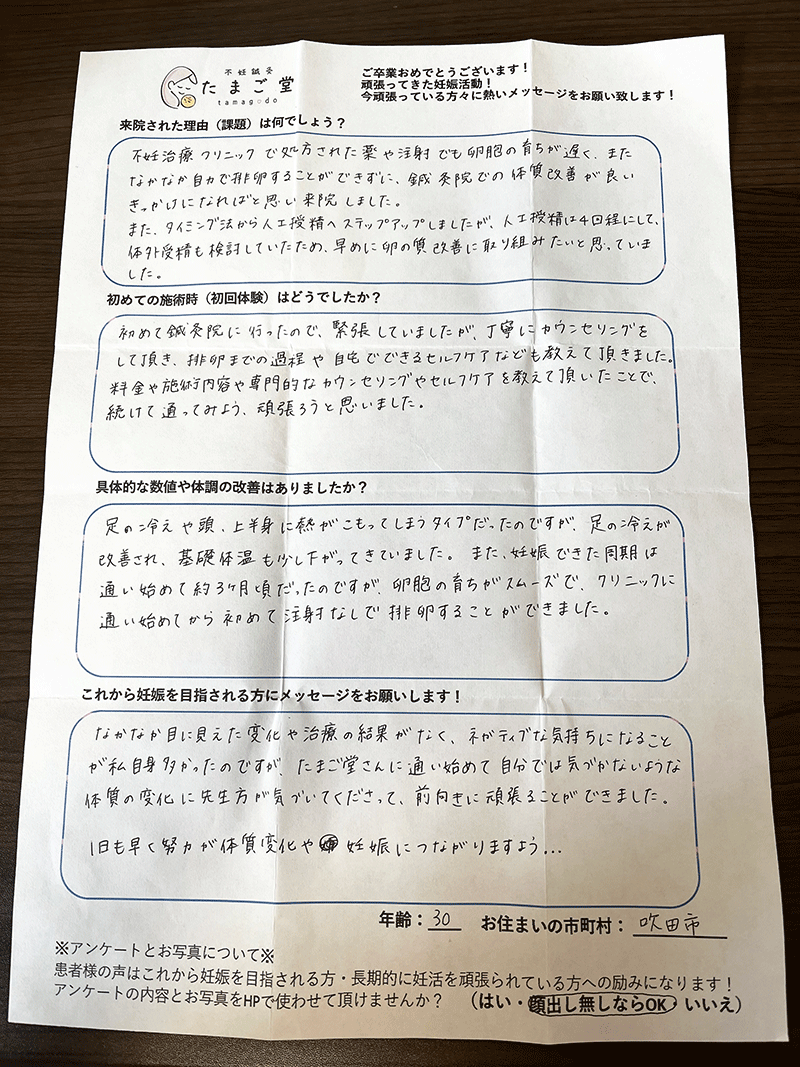 不妊鍼灸
たまご堂
tamagodo
ご卒業おめでとうございます！
頑張ってきた妊娠活動！
今頑張っている方々に熱いメッセージをお願い致します！
来院された理由（課題）は何でしょう？
不妊治療クリニックで処方された薬や注射でも卵胞の育ちが遅く、また
なかなか自力で排卵することができずに、鍼灸院での体質改善が良い
きっかけになればと思い来院しました。
また、タイミング法から人工授精へステップアップしましたが、人工授精は4回程にして、
体外受精も検討していたため、早めに卵の質改善に取り組みたいと思っていま
した。
初めての施術時（初回体験）はどうでしたか？
初めて鍼灸院に行ったので、緊張していましたが、丁寧にカウンセリングを
して頂き、排卵までの過程や自宅でできるセルフケアなども教えて頂きました。
料金や施術内容や専門的なカウンセリングやセルフケアを教えて頂いたことで、
続けて通ってみよう、頑張ろうと思いました。
具体的な数値や体調の改善はありましたか？
足の冷えや頭、上半身に熱がこもってしまうタイプだったのですが、足の冷えが
改善され、基礎体温も少し下がってきていました。また、妊娠できた周期は
通い始めて約3ヶ月頃だったのですが、卵胞の育ちがスムーズで、クリニックに
通い始めてから初めて注射なしで排卵することができました。
これから妊娠を目指される方にメッセージをお願いします！
なかなか目に見えた変化や治療の結果がなく、ネガティブな気持ちになること
が私自身多かったのですが、たまご堂さんに通い始めて自分では気づかないような
体質の変化に先生方が気づいてくださって、前向きに頑張ることができました。
1日も早く努力が体質変化や妊娠につながりますよう...
年齢：30 お住まいの市町村：吹田市
※アンケートとお写真について※
患者様の声はこれから妊娠を目指される方・長期的に妊活を頑張られている方への励みになります！
アンケートの内容とお写真をHPで使わせて頂けませんか？ （はい・顔出し無しならOK・いいえ）